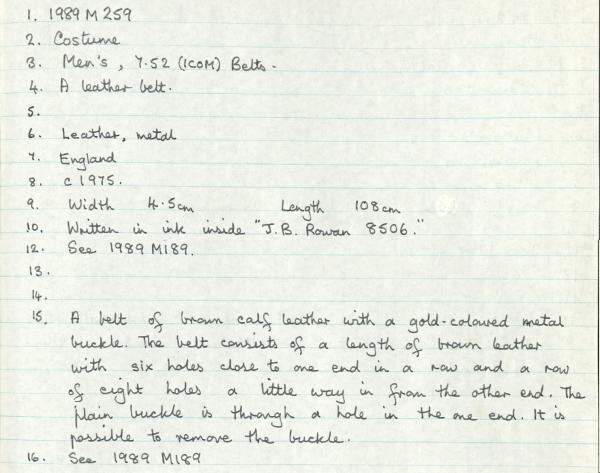 1. 1989 M 259
2. Costume
3. Men's, 7.52 (ICOM) Belts.
4. A leather belt.
5.
6. Leather, metal
7. England
8. c 1975.
9. Width 4.5cm Length 108cm
10. Written in ink inside "J.B. Rowan 8506."
12. See 1989 M189.
13.
14.
15. A belt of brown calf leather with a gold-coloured metal
buckle. The belt consists of a length of brown leather
with six holes close to one end in a row and a row
of eight holes a little way in from the other end. The
plain buckle is through a hole in the one end. It is
possible to remove the buckle.
16. See 1989 M189